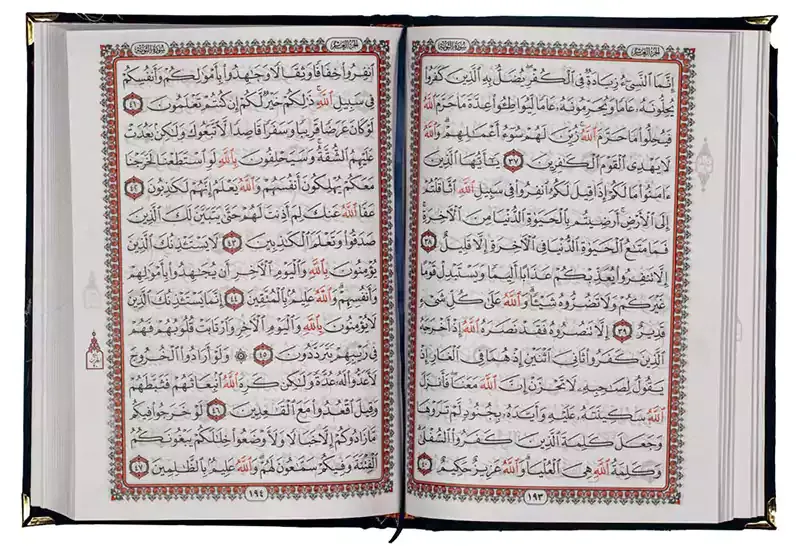 الجزء العاشر
سورة التوبة
إِنَّمَا النَّسِيءُ زِيَادَةٌ فِي الْكُفْرِ يُضَلُّ بِهِ الَّذِينَ كَفَرُوا
يُحِلُّونَهُ عَامًا وَيُحَرِّمُونَهُ عَامًا لِيُوَاطِئُوا عِدَّةَ مَا حَرَّمَ اللَّهُ
فَيُحِلُّوا مَا حَرَّمَ اللَّهُ زُيِّنَ لَهُمْ سُوءُ أَعْمَالِهِمْ وَاللَّهُ
لَا يَهْدِي الْقَوْمَ الْكَافِرِينَ ٣٧ يَا أَيُّهَا الَّذِينَ
ءَامَنُوا مَا لَكُمْ إِذَا قِيلَ لَكُمُ انْفِرُوا فِي سَبِيلِ اللَّهِ اثَّاقَلْتُمْ
إِلَى الْأَرْضِ أَرَضِيتُمْ بِالْحَيَوٰةِ الدُّنْيَا مِنَ الْآخِرَةِ
فَمَا مَتَاعُ الْحَيَوٰةِ الدُّنْيَا فِي الْآخِرَةِ إِلَّا قَلِيلٌ ٣٨
إِلَّا تَنْفِرُوا يُعَذِّبْكُمْ عَذَابًا أَلِيمًا وَيَسْتَبْدِلْ قَوْمًا
غَيْرَكُمْ وَلَا تَضُرُّوهُ شَيْئًا وَاللَّهُ عَلَىٰ كُلِّ شَيْءٍ
قَدِيرٌ ٣٩ إِلَّا تَنْصُرُوهُ فَقَدْ نَصَرَهُ اللَّهُ إِذْ أَخْرَجَهُ
الَّذِينَ كَفَرُوا ثَانِيَ اثْنَيْنِ إِذْ هُمَا فِي الْغَارِ إِذْ
يَقُولُ لِصَاحِبِهِ لَا تَحْزَنْ إِنَّ اللَّهَ مَعَنَا فَأَنْزَلَ
اللَّهُ سَكِينَتَهُ عَلَيْهِ وَأَيَّدَهُ بِجُنُودٍ لَمْ تَرَوْهَا
وَجَعَلَ كَلِمَةَ الَّذِينَ كَفَرُوا السُّفْلَىٰ
وَكَلِمَةُ اللَّهِ هِيَ الْعُلْيَا وَاللَّهُ عَزِيزٌ حَكِيمٌ ٤٠
١٩٣
الجزء العاشر
سورة التوبة
انْفِرُوا خِفَافًا وَثِقَالًا وَجَاهِدُوا بِأَمْوَالِكُمْ وَأَنْفُسِكُمْ
فِي سَبِيلِ اللَّهِ ذَٰلِكُمْ خَيْرٌ لَكُمْ إِنْ كُنْتُمْ تَعْلَمُونَ ٤١
لَوْ كَانَ عَرَضًا قَرِيبًا وَسَفَرًا قَاصِدًا لَاتَّبَعُوكَ وَلَٰكِنْ بَعُدَتْ
عَلَيْهِمُ الشُّقَّةُ وَسَيَحْلِفُونَ بِاللَّهِ لَوِ اسْتَطَعْنَا لَخَرَجْنَا
مَعَكُمْ يُهْلِكُونَ أَنْفُسَهُمْ وَاللَّهُ يَعْلَمُ إِنَّهُمْ لَكَاذِبُونَ ٤٢
عَفَا اللَّهُ عَنْكَ لِمَ أَذِنْتَ لَهُمْ حَتَّىٰ يَتَبَيَّنَ لَكَ الَّذِينَ
صَدَقُوا وَتَعْلَمَ الْكَاذِبِينَ ٤٣ لَا يَسْتَأْذِنُكَ الَّذِينَ
يُؤْمِنُونَ بِاللَّهِ وَالْيَوْمِ الْآخِرِ أَنْ يُجَاهِدُوا بِأَمْوَالِهِمْ
وَأَنْفُسِهِمْ وَاللَّهُ عَلِيمٌ بِالْمُتَّقِينَ ٤٤ إِنَّمَا يَسْتَأْذِنُكَ الَّذِينَ
لَا يُؤْمِنُونَ بِاللَّهِ وَالْيَوْمِ الْآخِرِ وَارْتَابَتْ قُلُوبُهُمْ فَهُمْ
فِي رَيْبِهِمْ يَتَرَدَّدُونَ ٤٥ ۞ وَلَوْ أَرَادُوا الْخُرُوجَ
لَأَعَدُّوا لَهُ عُدَّةً وَلَٰكِنْ كَرِهَ اللَّهُ انْبِعَاثَهُمْ فَثَبَّطَهُمْ
وَقِيلَ اقْعُدُوا مَعَ الْقَاعِدِينَ ٤٦ لَوْ خَرَجُوا فِيكُمْ
مَا زَادُوكُمْ إِلَّا خَبَالًا وَلَأَوْضَعُوا خِلَالَكُمْ يَبْغُونَكُمُ
الْفِتْنَةَ وَفِيكُمْ سَمَّاعُونَ لَهُمْ وَاللَّهُ عَلِيمٌ بِالظَّالِمِينَ ٤٧
١٩٤